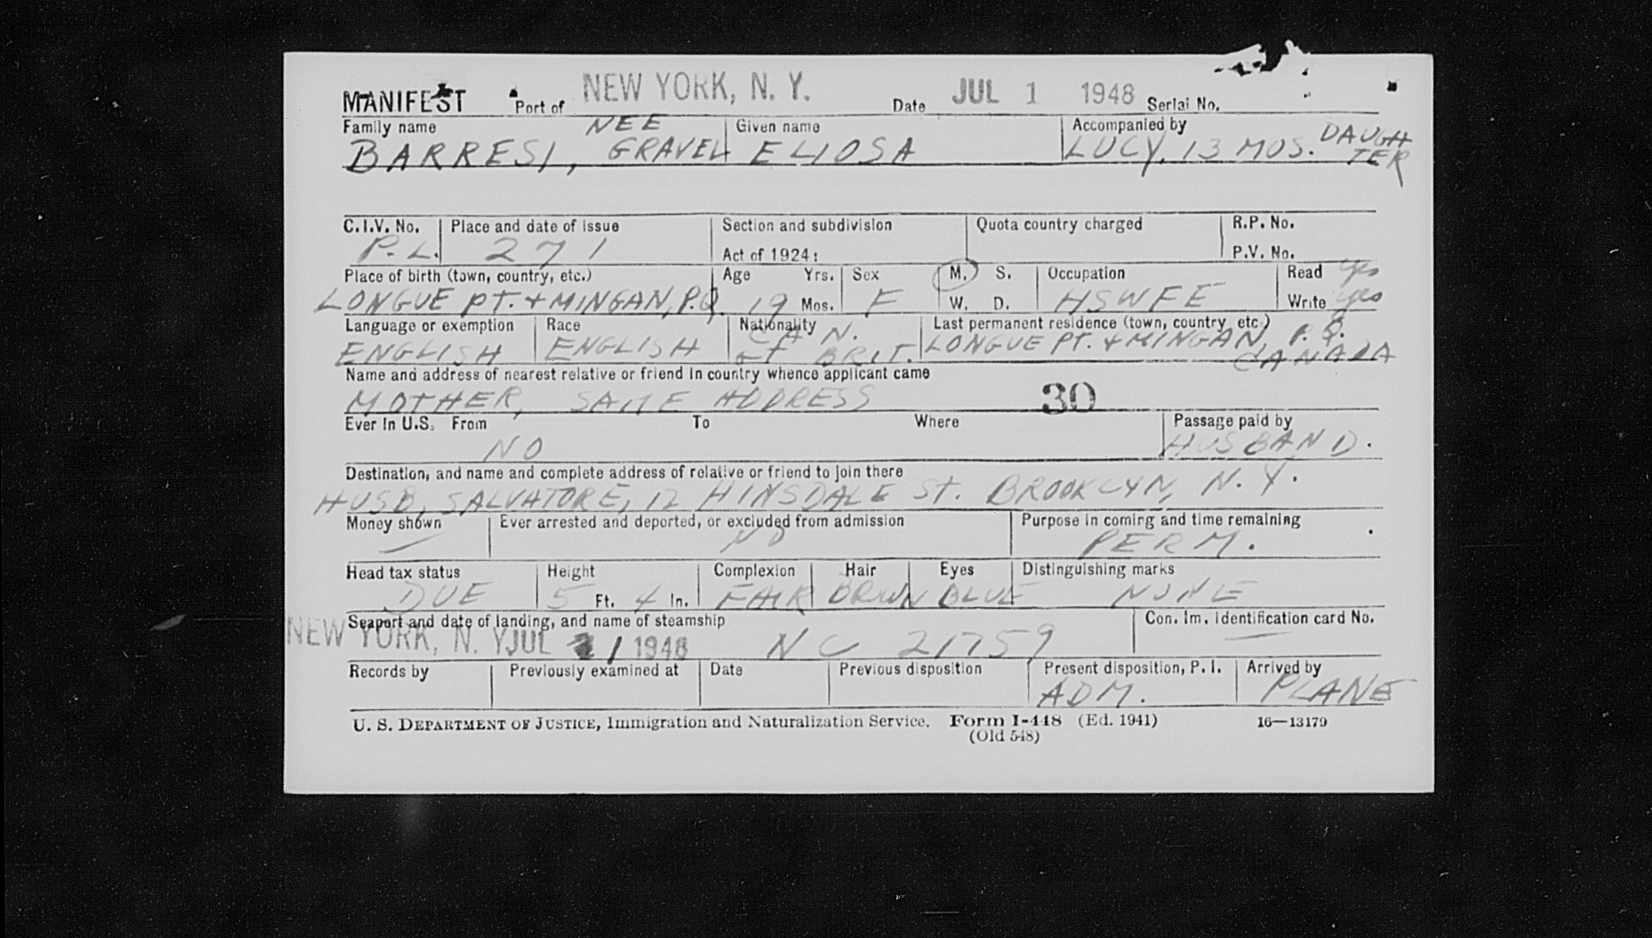 MANIFEST Port of NEW YORK, N. Y. Date JUL 1 1948 Serial No.
Family name NEE Given name Accompanied by
BARRESI, GRAVEL ELIOSA LUCY, 13 MOS. DAUGHTER
C.I.V. No. Place and date of issue Section and subdivision Quota country charged R.P. No.
P.L. 271 Act of 1924: P.V. No.
Place of birth (town, country, etc.) Age Yrs. Sex M. S. Occupation Read yes
LONGUE PT. + MINGAN, P.Q. 19 Mos. F W. D. HSWFE Write yes
Language or exemption Race Nationality Last permanent residence (town, country, etc.)
ENGLISH ENGLISH CAN. Gt BRIT. LONGUE PT. + MINGAN, P.Q. CANADA
Name and address of nearest relative or friend in country whence applicant came
MOTHER, SAME ADDRESS 30
Ever in U.S. From To Where Passage paid by
NO HUSBAND.
Destination, and name and complete address of relative or friend to join there
HUSB, SALVATORE, 12 HINSDALE St. BROOKLYN, N.Y.
Money shown Ever arrested and deported, or excluded from admission Purpose in coming and time remaining
— NO PERM.
Head tax status Height Complexion Hair Eyes Distinguishing marks
DUE 5 Ft. 4 In. FAIR BRWN BLUE NONE
Seaport and date of landing, and name of steamship Con. Im. Identification card No.
NEW YORK, N. Y. JUL 1 1948 NC 21759 —
Records by Previously examined at Date Previous disposition Present disposition, P. I. Arrived by
ADM. PLANE
U. S. DEPARTMENT OF JUSTICE, Immigration and Naturalization Service. Form I-448 (Ed. 1941) 16—13179
(Old 548)